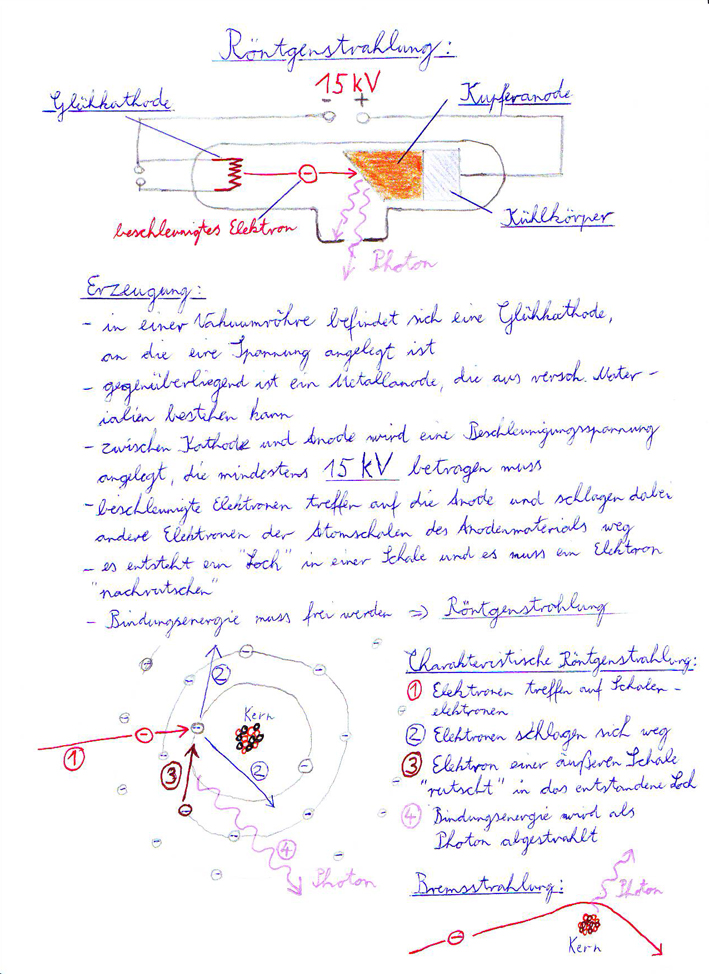 Röntgenstrahlung:
15 kV
- +
Glühkathode
Kupferanode
beschleunigtes Elektron
Kühlkörper
Photon
Erzeugung:
- in einer Vakuumröhre befindet sich eine Glühkathode,
an die eine Spannung angelegt ist
- gegenüberliegend ist ein Metallanode, die aus versch. Mater-
ialien bestehen kann
- zwischen Kathode und Anode wird eine Beschleunigungsspannung
angelegt, die mindestens 15 kV betragen muss
- beschleunigte Elektronen treffen auf die Anode und schlagen dabei
andere Elektronen der Atomschalen des Anodenmaterials weg
- es entsteht ein "Loch" in einer Schale und es muss ein Elektron
"nachrutschen"
- Bindungsenergie muss frei werden => Röntgenstrahlung
Charakteristische Röntgenstrahlung:
1 Elektronen treffen auf Schalen-
elektronen
2 Elektronen schlagen sich weg
3 Elektron einer äußeren Schale
"rutscht" in das entstandene Loch
4 Bindungsenergie wird als
Photon abgestrahlt
2
Kern
1
2
3
4
Photon
Bremsstrahlung:
Photon
Kern